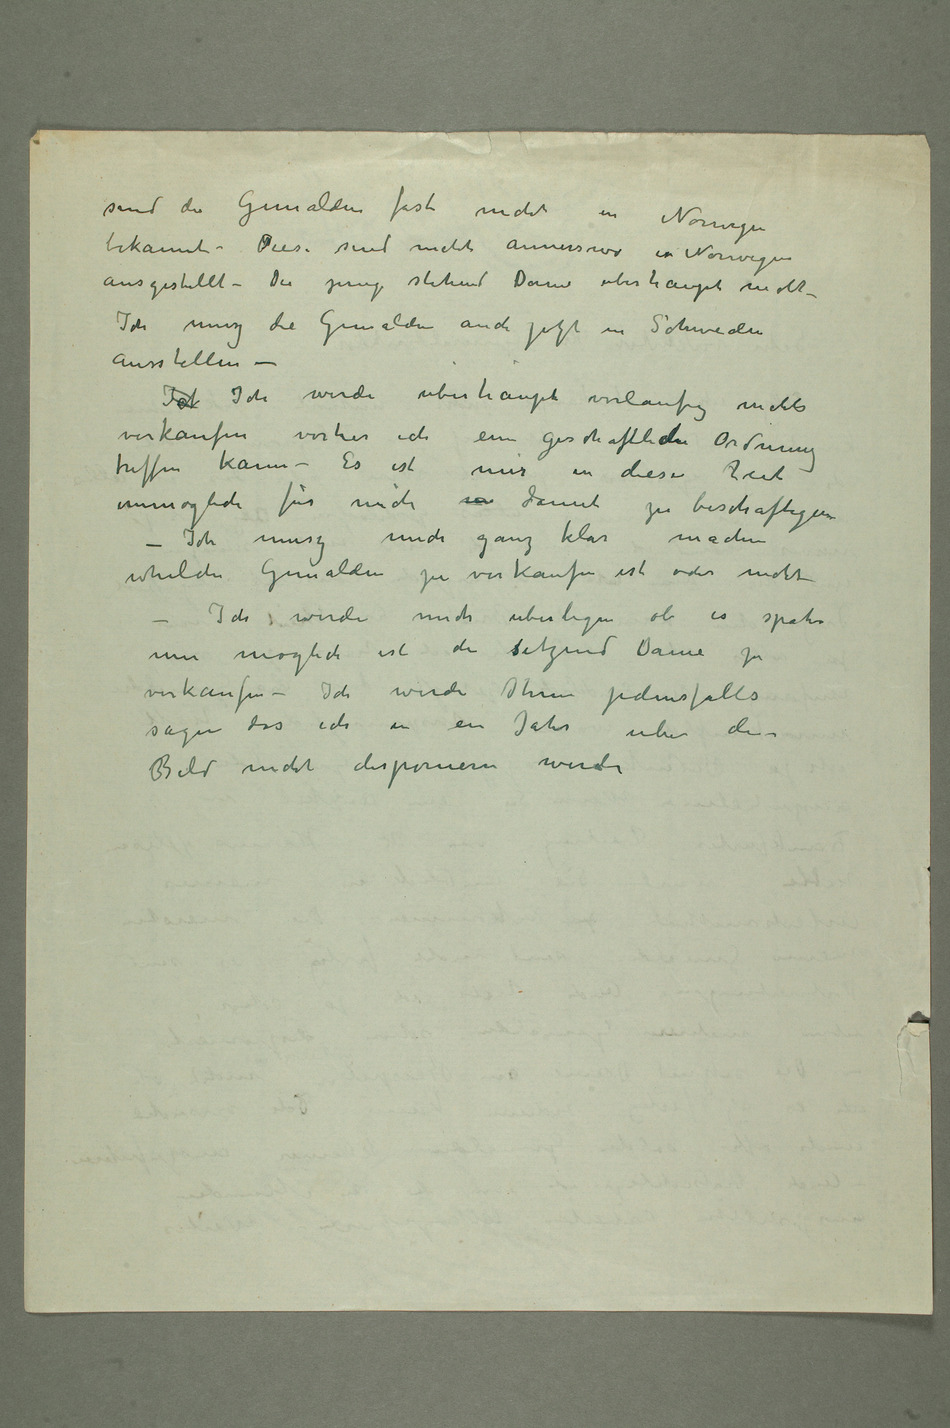 sind die Gemälden fast nicht in Norwegen
bekannt – Diese sind nicht annerswo in Norwegen
ausgestellt – Die jung stehend Dame uberhaupt nicht –
Ich musz die Gemalden auch jetzt in Schweden
ausstellen –
Ich werde uberhaupt vorlaufig nichts
verkaufen vorher ich eine geschaftliche Ordnung
treffen kann – Es ist mir in diese Zeit
unmoglich für mich damit zu beschaftigen
– Ich musz mich ganz klar machen
whelche Gemalden zu verkaufen ist oder nicht
– Ich werde mich uberlegen ob es spater
mir moglich ist die sitzend Dame zu
verkaufen – Ich werde Ihnen jedensfalls
sagen das ich in ein Jahr uber die
Bild nicht disponieren werde